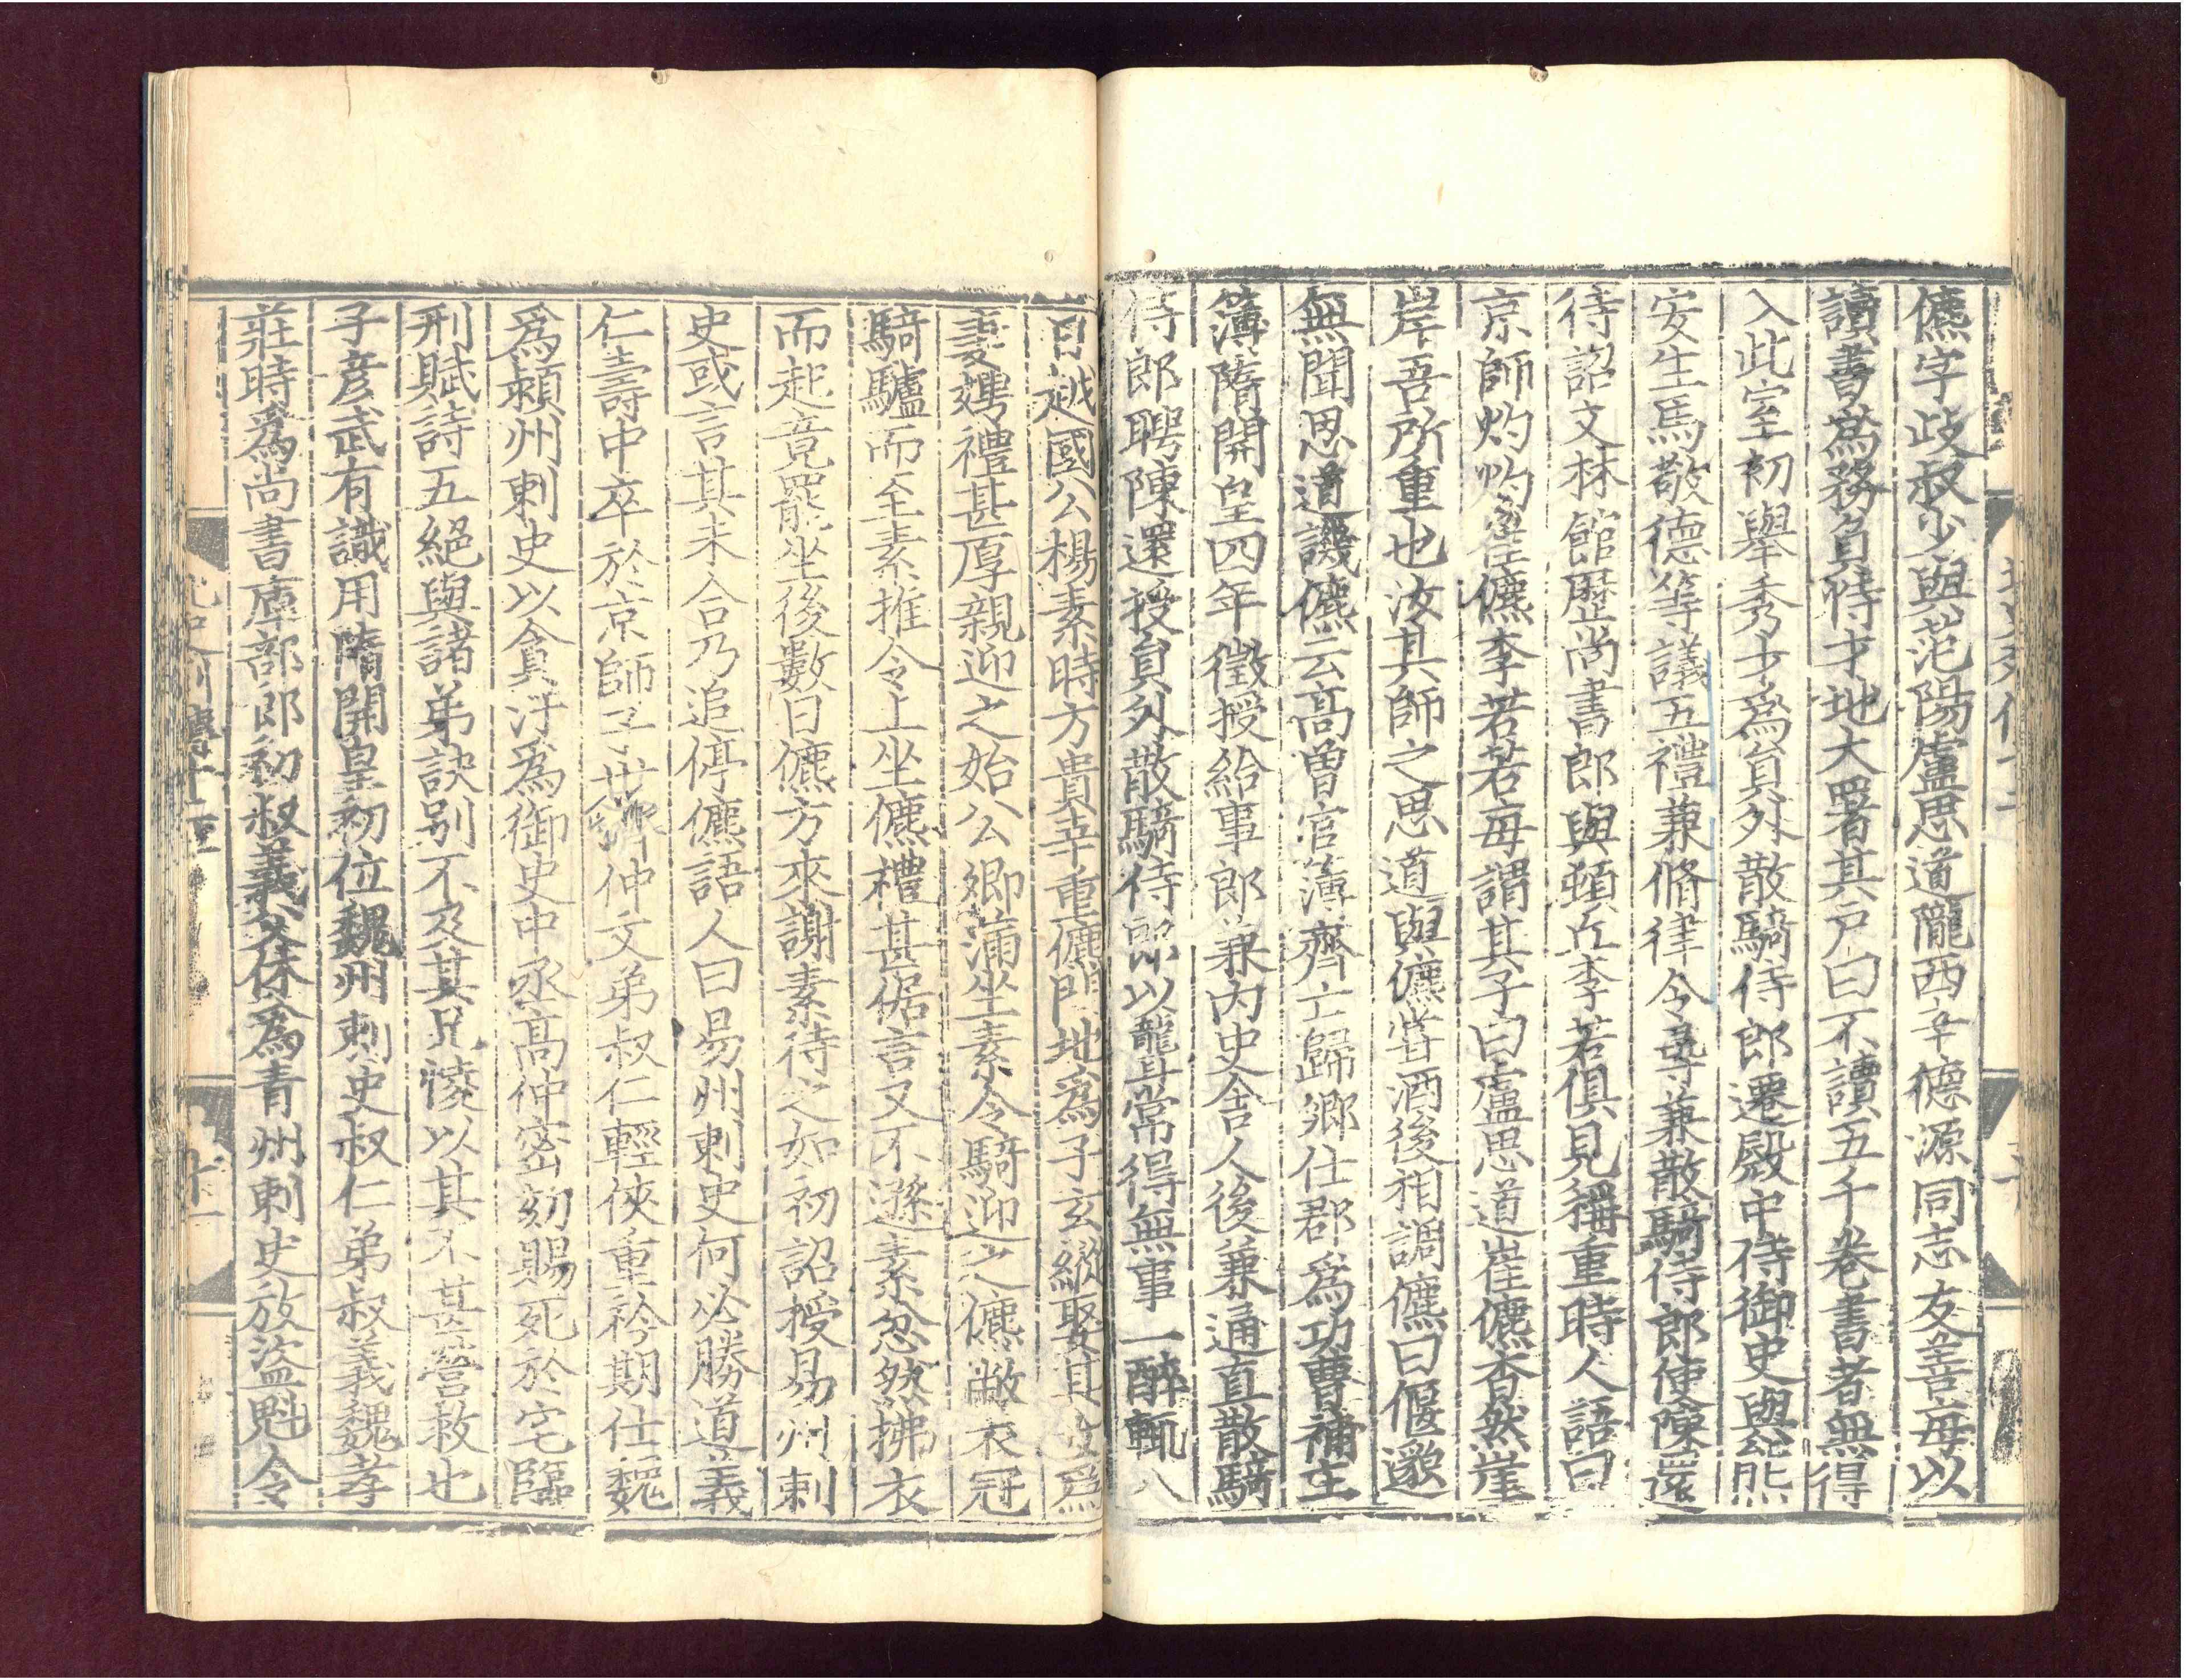 儦字岐叔少與范陽盧思道隴西辛德源同志友善每以
讀書爲務負恃才地大署其戶曰不讀五千卷書者無得
入此室初舉秀才爲貟外散騎侍郎遷殿中侍御史與熊
安生馬敬德等議五禮兼脩律令尋兼散騎侍郎使陳還
待詔文林館歷尚書郎與頓丘李若俱見稱重時人語曰
京師灼灼崔儦李若若每謂其子曰盧思道崔儦杳然崖
岸吾所重也汝其師之思道與儦嘗酒後相調儦曰偃邈
無聞思道譏儦云高曽官薄齊亡歸鄉仕郡爲功曹補主
簿隋開皇四年徵授給事郎兼內史舍人後兼通直散騎
侍郎聘陳還授貟外散騎侍郎以聾常得無事一醉輒八
日越國公楊素時方貴幸重儦門地爲子玄縱娶其女爲
妻娉禮甚厚親迎之始公卿滿坐素令騎迎之儦敝衣冠
騎驢而至素推令上坐儦禮甚倨言又不遜素忽然拂衣
而起竟罷坐後數日儦方來謝素待之如初詔授易州刺
史或言其未合乃追停儦語人曰易州刺史何必勝道義
仁壽中卒於京師子世濟仲文弟叔仁輕俠重衿期仕魏
爲潁州刺史以貪汙爲御史中丞高仲密劾賜死於宅臨
刑賦詩五絕與諸弟訣别不及其兄㥄以其不甚營救也
子彥武有識用隋開皇初位魏州刺史叔仁弟叔義魏孝
莊時爲尚書庫部郎初叔義父休爲青州刺史放盜魁令
北史列傳十二